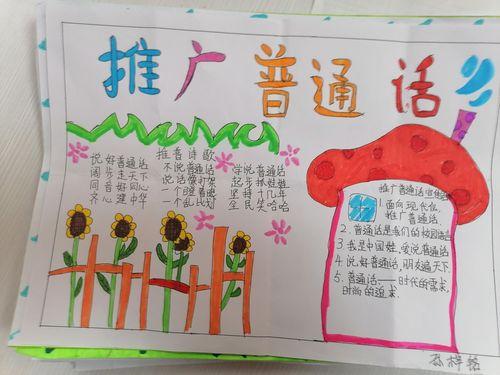 推广普通话
推普诗歌
说好普通话
阔步走天下
同音好同心
齐心建中华
不说普通话
说话像打架
一个瞪着眼
一个乱比划
学说普通
坚持十几年
笑哈哈
推广普通话宣传
1.面向现代化,
推广普通话
2.普通话是我们的校园语言
3.我是中国娃,爱说普通话
4.说好普通话,朋友遍天下.
5.普通话——时代的需求,
时尚的追求.